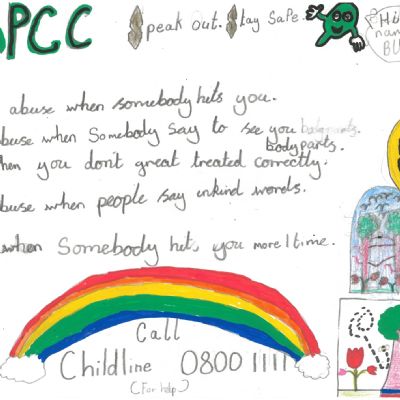 PCC
Speak out. Stay Safe.
Hi
nam
BU
abuse when somebody hits you.
buse when Somebody say to see you bodyparts.
body parts.
hen you don't great treated correctly.
buse when people say unkind words.
when Somebody hits you more 1 time.
Call
Childline 0800 1111
(For help)